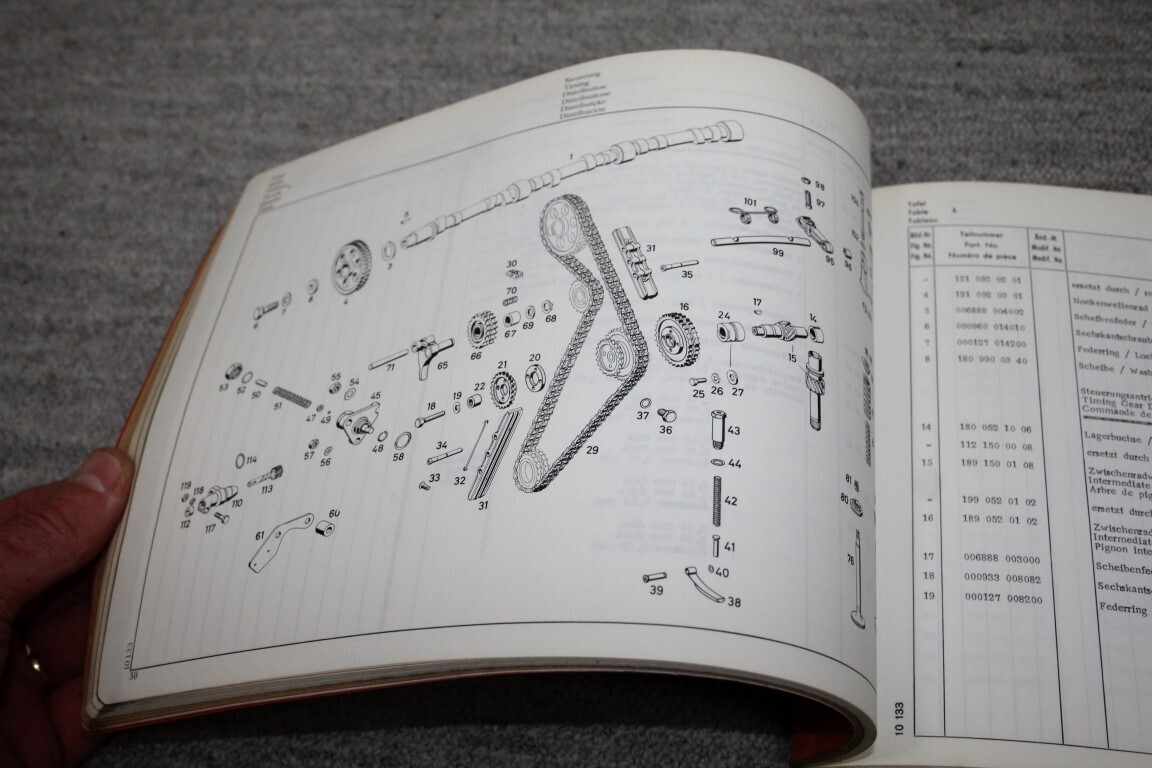 Steuerung
Timing
Distribution
Distribuzione
Distribução
Distribución
1
3
4
6
30
70
67
69
68
66
71
65
31
35
101
98
97
99
95
96
16
17
24
14
15
25
26
27
53
52
50
51
55
54
47
49
45
48
58
57
56
18
19
22
21
20
34
33
32
31
29
37
36
43
44
42
41
40
39
38
114
113
119
118
110
112
117
61
60
81
80
76
10 133
50
Tafel
Table 4
Tableau
Bild-Nr. Teilnummer Änd.-M.
Fig. No. Part. No. Modif. No.
Fig. No. Numéro de pièce Modif. No.
- 121 052 02 01 ersetzt durch /
4 121 052 03 01 Nockenwellenrad
5 006888 004002 Scheibenfeder /
6 000960 014010
7 000127 014200 Federring /
8 180 990 03 40 Scheibe /
Steuerungsantri
Timing Gear
Commande de
14 180 052 10 06 Lagerbuchse /
- 112 150 00 08 ersetzt durch
15 189 150 01 08 Zwischenrad
Intermediate
Arbre de
- 199 052 01 02 ersetzt
16 189 052 01 02 Zwischenrad
Intermediat
Pignon inte
17 006888 003000 Scheibenfe
18 000933 008082 Sechskants
19 000127 008200 Federring
10 133